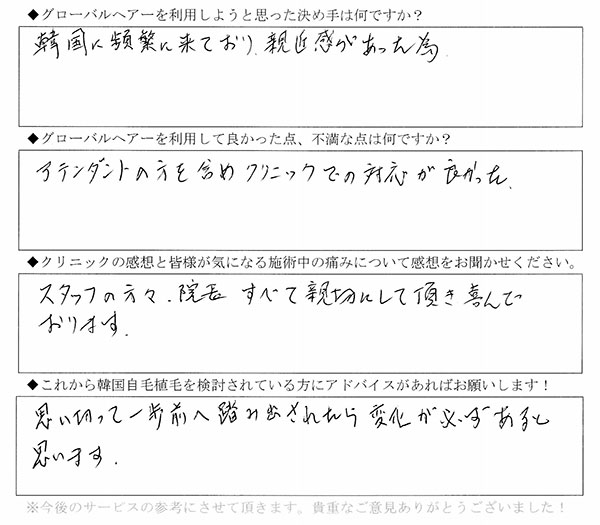 ◆グローバルヘアーを利用しようと思った決め手は何ですか？
韓国に頻繁に来ており、親近感があった為
◆グローバルヘアーを利用して良かった点、不満な点は何ですか？
アテンダントの方を含めクリニックでの対応が良かった.
◆クリニックの感想と皆様が気になる施術中の痛みについて感想をお聞かせください。
スタッフの方々、院長 すべて親切にして頂き喜んで
おります.
◆これから韓国自毛植毛を検討されている方にアドバイスがあればお願いします！
思い切って一歩前へ踏み出されたら変化が必ずあると
思います.
※今後のサービスの参考にさせて頂きます。貴重なご意見ありがとうございました！